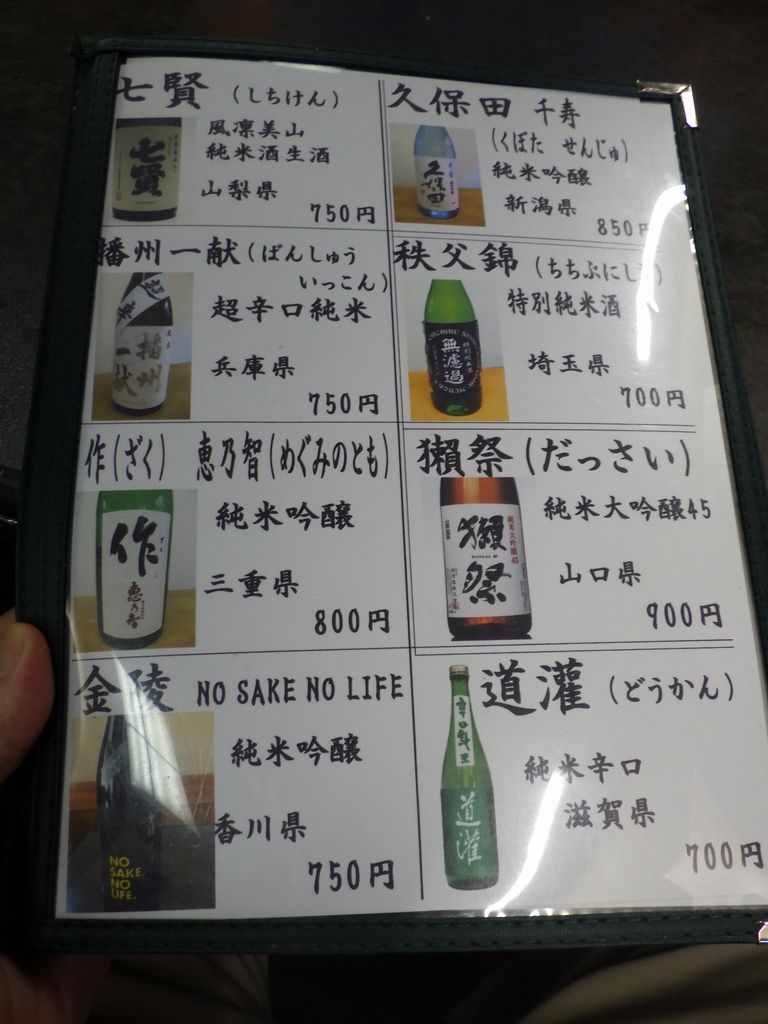 七賢 (しちけん)
風凛美山
純米酒生酒
山梨県
750円
七賢
久保田 千寿
(くぼた せんじゅ)
純米吟醸
新潟県
850円
久保田
播州一献(ばんしゅう
いっこん)
超辛口純米
兵庫県
750円
播州
一献
秩父錦 (ちちぶにしき)
特別純米酒
埼玉県
700円
無濾過
作(ざく) 恵乃智(めぐみのとも)
純米吟醸
三重県
800円
作
恵乃智
獺祭(だっさい)
純米大吟醸45
山口県
900円
獺祭
純米大吟醸45
金陵 NO SAKE NO LIFE
純米吟醸
香川県
750円
NO
SAKE,
NO
LIFE.
道灌 (どうかん)
純米辛口
滋賀県
700円
道灌